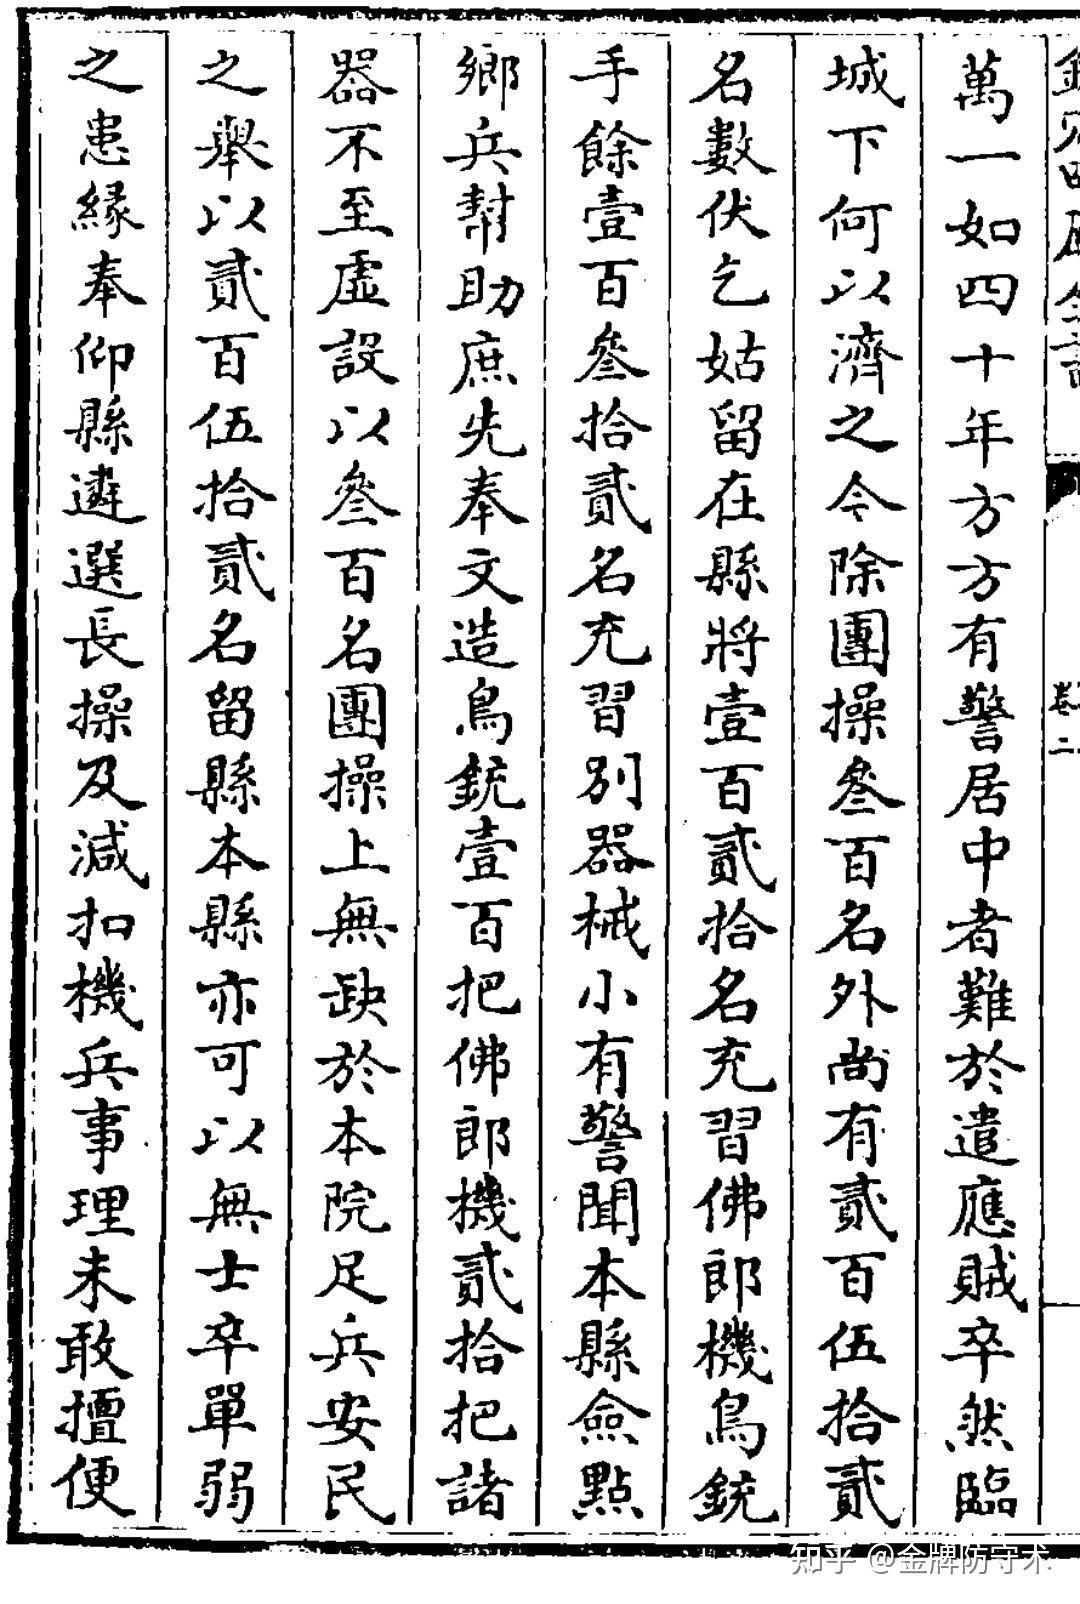 卷二
萬一如四十年方方有警居中者難於遣應賊卒然臨
城下何以濟之令除團操叄百名外尚有貳百伍拾貳
名數伏乞姑留在縣將壹百貳拾名充習佛郎機鳥銃
手餘壹百叄拾貳名充習別器械小有警聞本縣僉點
鄉兵幇助庶先奉文造鳥銃壹百把佛郎機貳拾把諸
器不至虛設以叄百名團操上無缺於本院足兵安民
之舉以貳百伍拾貳名留縣本縣亦可以無士卒單弱
之患緣奉仰縣遴選長操及減扣機兵事理未敢擅便
知乎 @金牌防守术